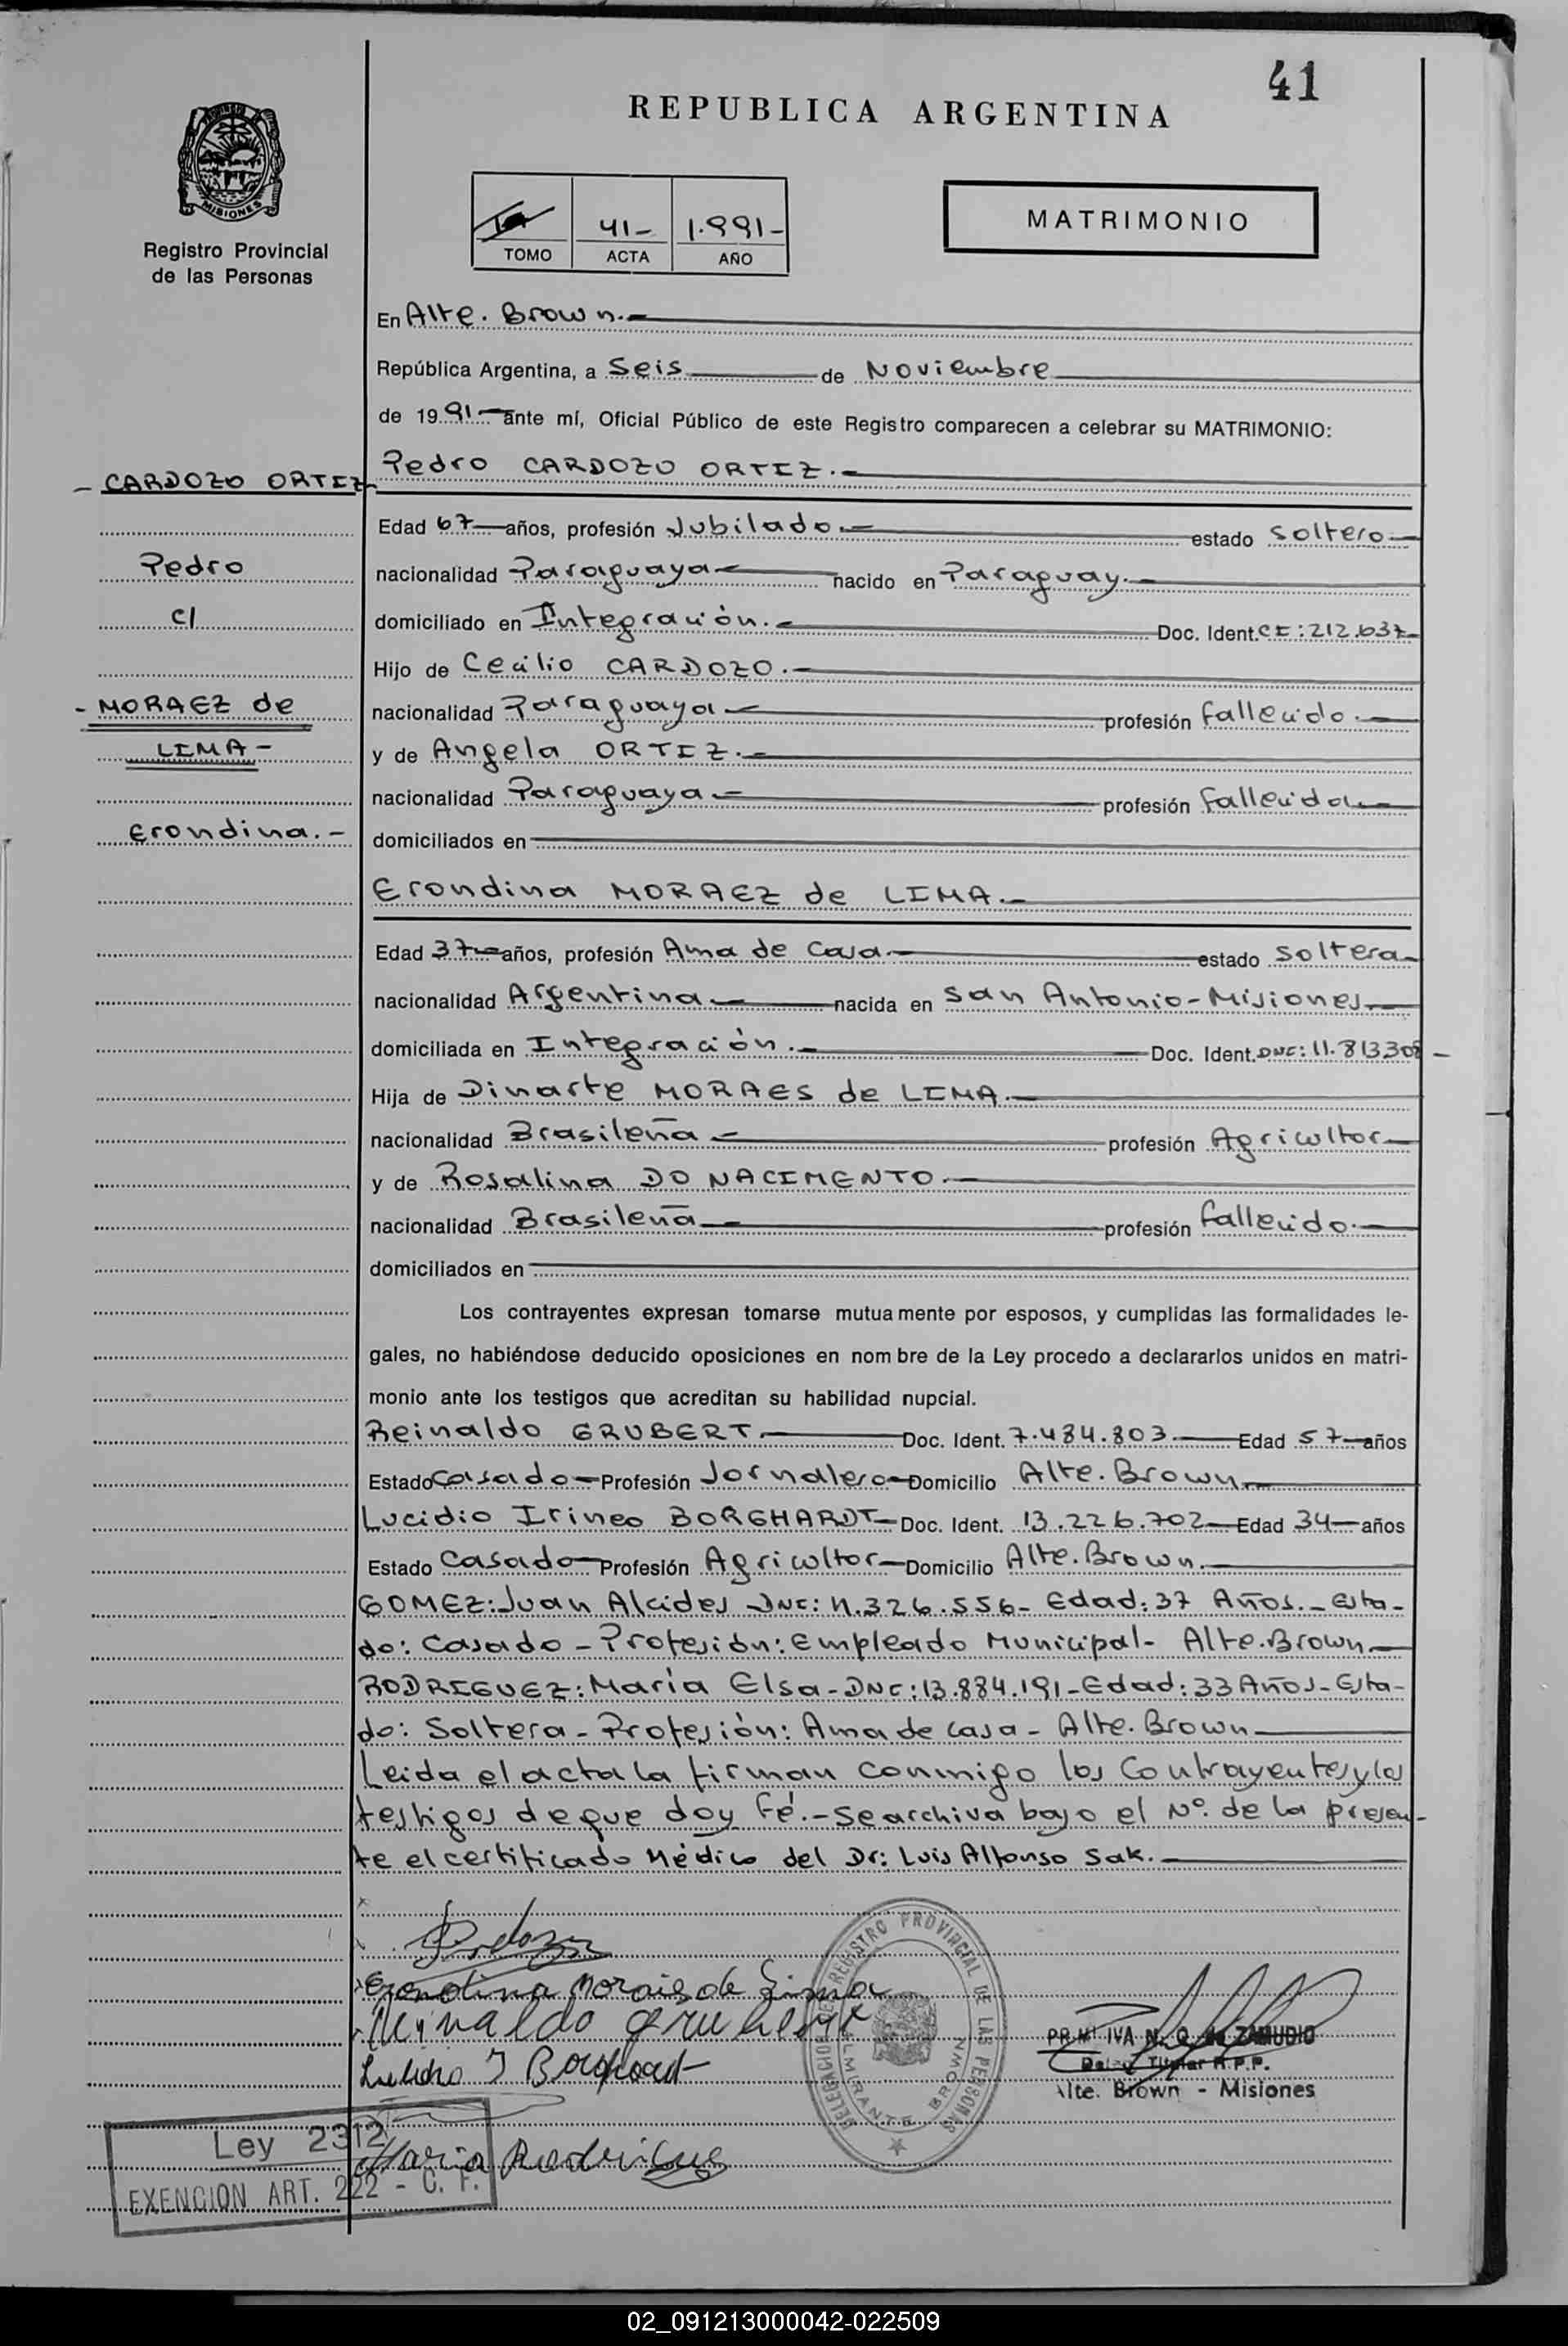 41
REPUBLICA ARGENTINA
MISIONES
Registro Provincial
de las Personas
41- 1.991-
TOMO ACTA AÑO
MATRIMONIO
En Alte. Brown.-
República Argentina, a Seis de Noviembre
de 1991- ante mí, Oficial Público de este Registro comparecen a celebrar su MATRIMONIO:
- CARDOZO ORTIZ-
Pedro
c/
- MORAEZ de
LIMA-
Erondina.-
Pedro CARDOZO ORTIZ.-
Edad 67 años, profesión Jubilado.- estado Soltero-
nacionalidad Paraguaya- nacido en Paraguay.-
domiciliado en Integración.- Doc. Ident. CI: 212.637-
Hijo de Cecilio CARDOZO.-
nacionalidad Paraguaya- profesión fallecido.-
y de Angela ORTIZ.-
nacionalidad Paraguaya- profesión fallecida-
domiciliados en
Erondina MORAEZ de LIMA.-
Edad 37- años, profesión Ama de Casa- estado Soltera-
nacionalidad Argentina- nacida en San Antonio-Misiones-
domiciliada en Integración.- Doc. Ident. DNI: 11.813308-
Hija de Dinarte MORAES de LIMA.-
nacionalidad Brasileña- profesión Agricultor-
y de Rosalina DO NACIMENTO.-
nacionalidad Brasileña- profesión fallecido.-
domiciliados en
Los contrayentes expresan tomarse mutuamente por esposos, y cumplidas las formalidades le-
gales, no habiéndose deducido oposiciones en nombre de la Ley procedo a declararlos unidos en matri-
monio ante los testigos que acreditan su habilidad nupcial.
Reinaldo GRUBERT.- Doc. Ident. 7.484.803- Edad 57- años
Estado Casado- Profesión Jornalero- Domicilio Alte. Brown-
Lucidio Irineo BORGHARDT- Doc. Ident. 13.226.702- Edad 34- años
Estado Casado- Profesión Agricultor- Domicilio Alte. Brown.-
GOMEZ: Juan Alcides DNI: 11.326.556- Edad: 37 Años.- Esta-
do: Casado - Profesión: Empleado Municipal- Alte. Brown-
RODRIGUEZ: María Elsa - DNI: 13.884.191- Edad: 33 Años- Esta-
do: Soltera - Profesión: Ama de casa - Alte. Brown
Leida el acta la firman conmigo los Contrayentes y los
testigos de que doy fé.- Se archiva bajo el Nº. de la presen-
te el certificado Médico del Dr: Luis Alfonso Sak.
Erondina Morais de Lima
Reinaldo Grubert
DELEGACION DEL REGISTRO PROVINCIAL DE LAS PERSONAS
ALMIRANTE BROWN
IVA N. Q. de ZAMUDIO
Titular R.P.P.
Alte. Brown - Misiones
Maria Rodrigues
Ley 2312
EXENCION ART. 222 - C. F.
02_091213000042-022509